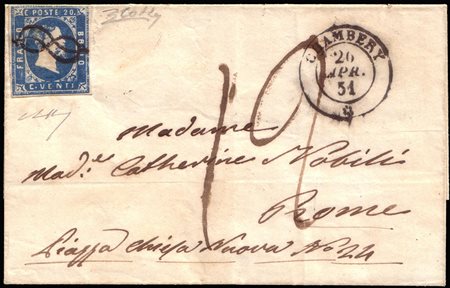 C. POSTE 20.
FRANCO
BOLLO
C. VENTI
CHAMBERY
20
APR.
51
19
Madame
Mad.e Catherine Nobili
Rome
Piazza Chiesa Nuova No 24